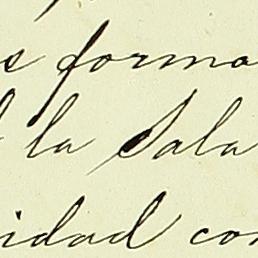 s forma
l la Sala
idad con